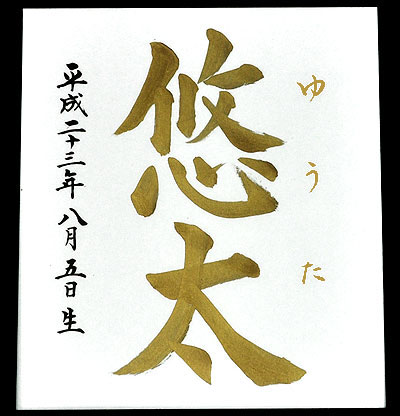 ゆうた
悠太
平成二十三年八月五日生